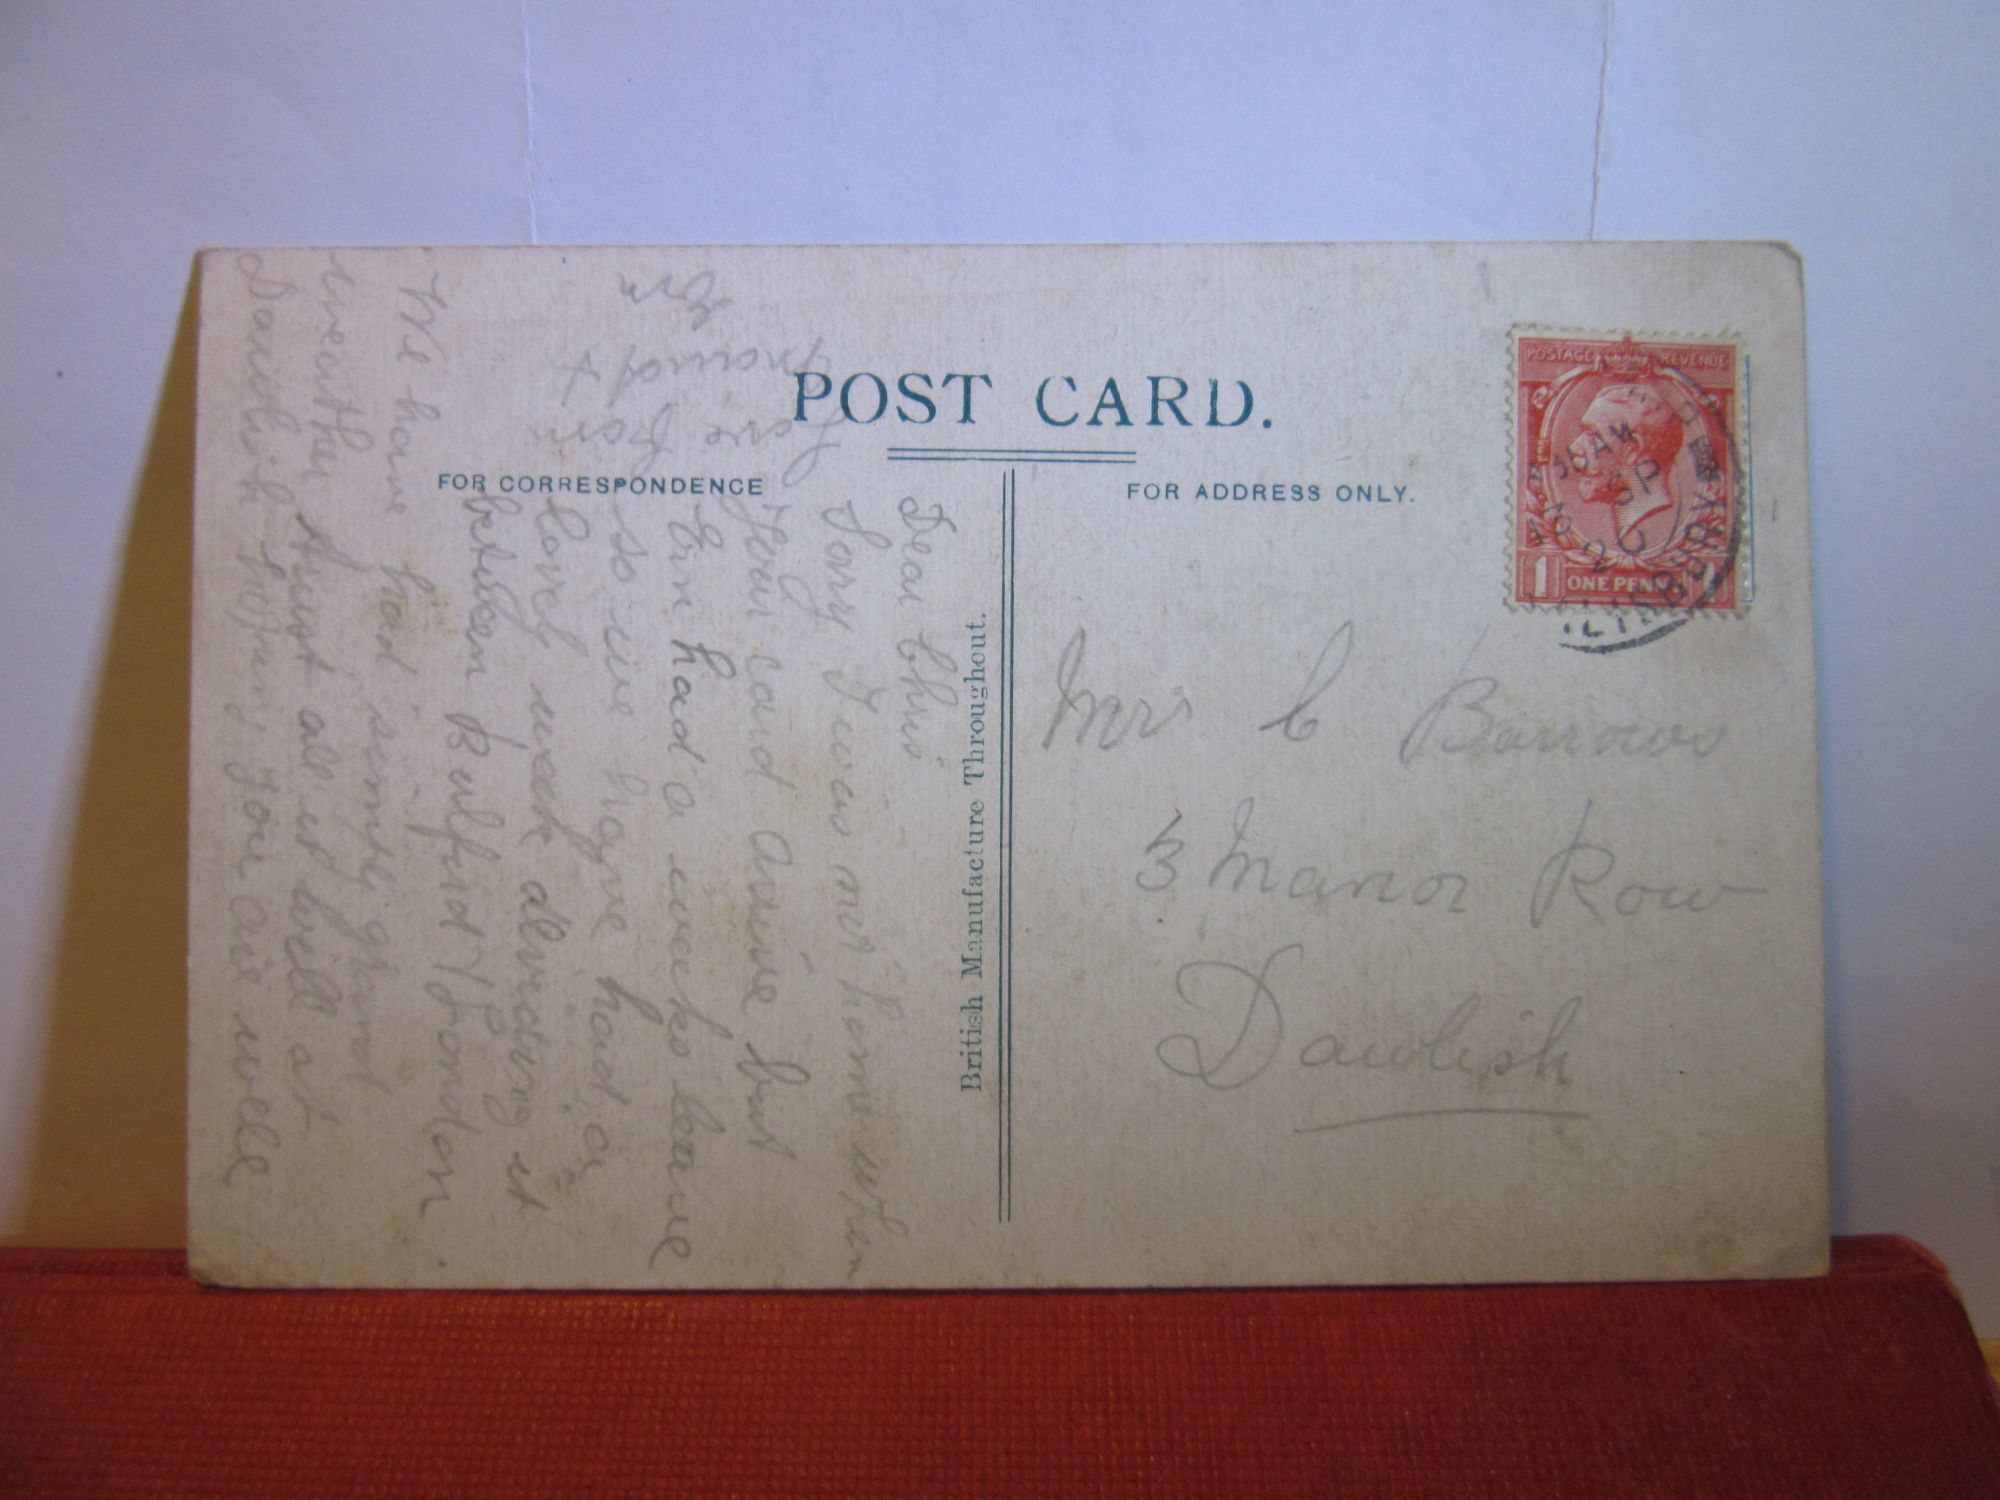 POST CARD.
FOR CORRESPONDENCE
FOR ADDRESS ONLY.
British Manufacture Throughout.
POSTAGE REVENUE
1 ONE PENNY 1
30 AM
SP
20
Mrs C Burrows
3 Manor Row
Dawlish
Dear Chris
Sorry I was not home when
Your card arrive but
Ern had a weeks leave
so we have had a
lovely week dividing it
between Bulford & London
We have had simply grand
weather trust all is well at
Dawlish hoping you are well
love from
Maud &
Ern